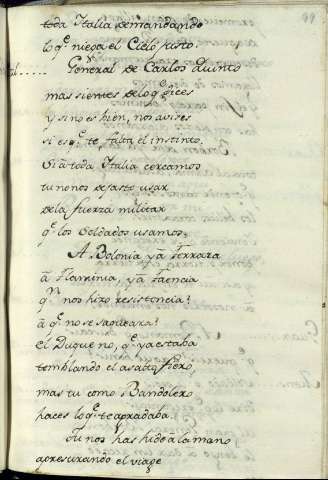 99
toda Italia demandando
lo q.e niega el Cielo justo.
General de Carlos Quinto
mas sientes delo q.e dices
y sino es bien, nos avises
si es q.e te falta el instinto.
Si ā toda Italia cercamos
tu nonos de usar
dela fuerza militar
q.e los Soldados usamos;
A Bolonia yā Ferrara
ā Flaminia, yā Faencia
q.n nos hizo resistencia?
ā q.n no se saqueara?
el Duque no, q.e ya estaba
temblando el asalto fiero,
mas tu como Bandolero
haces lo q.e te agradaba.
Tu nos has hido ā la mano
apresurando el viage